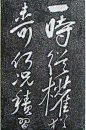 一時從權
奇何況積習